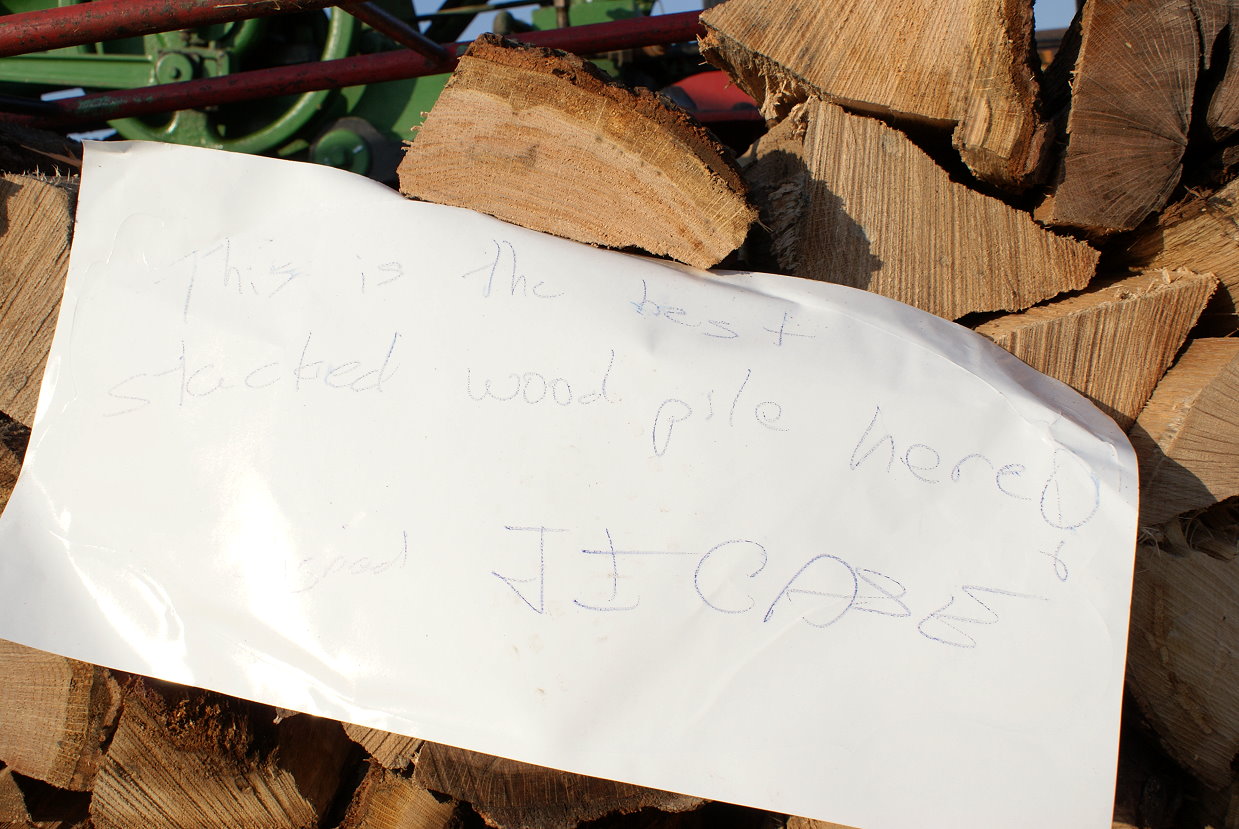 This is the best
stacked wood pile here!
good JI CASE